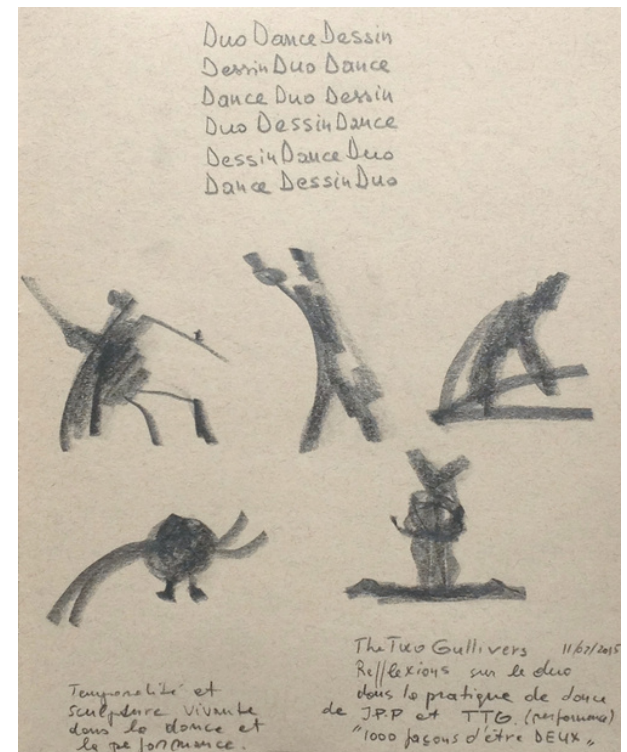 Duo Dance Dessin
Dessin Duo Dance
Dance Duo Dessin
Duo Dessin Dance
Dessin Dance Duo
Dance Dessin Duo
Temporalité et
sculpture vivante
dans la dance et
la performance.
The Two Gullivers 11/07/2015
Refflexions sur le duo
dans la pratique de dance
de J.P.P et TTG. (performance)
"1000 façons d'être DEUX"